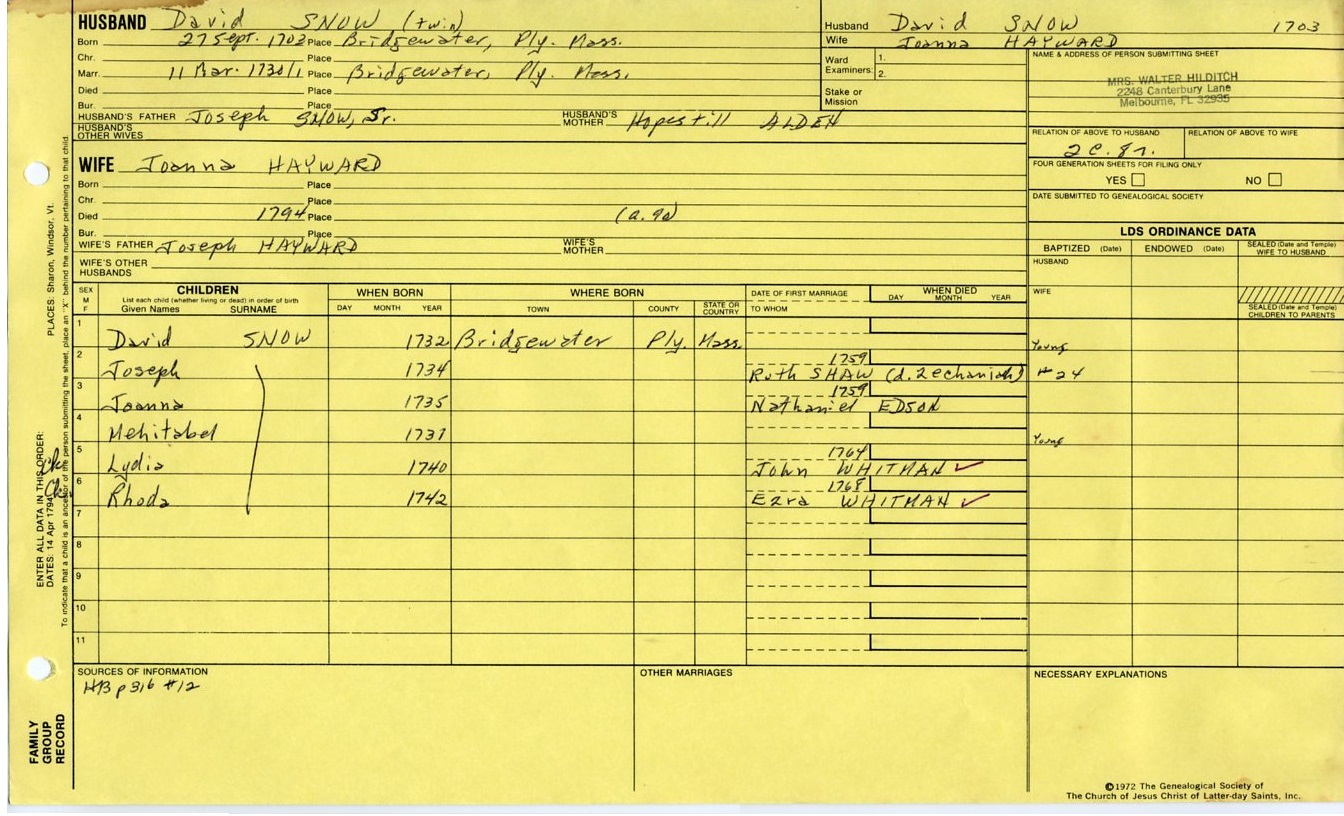 HUSBAND David SNOW (twin)
Born 27 Sept. 1703 Place Bridgewater, Ply. Mass.
Chr. Place
Marr. 11 Mar. 1730/1 Place Bridgewater, Ply. Mass.
Died Place
Bur. Place
HUSBAND'S FATHER Joseph SNOW, Sr. HUSBAND'S MOTHER Hopestill ALDEN
HUSBAND'S OTHER WIVES
Husband David SNOW 1703
Wife Joanna HAYWARD
Ward 1.
Examiners: 2.
Stake or Mission
NAME & ADDRESS OF PERSON SUBMITTING SHEET
MRS. WALTER HILDITCH
2248 Canterbury Lane
Melbourne, FL 32935
RELATION OF ABOVE TO HUSBAND RELATION OF ABOVE TO WIFE
2c. 8r.
FOUR GENERATION SHEETS FOR FILING ONLY
YES NO
DATE SUBMITTED TO GENEALOGICAL SOCIETY
WIFE Joanna HAYWARD
Born Place
Chr. Place
Died 1794 Place (a. 90)
Bur. Place
WIFE'S FATHER Joseph HAYWARD WIFE'S MOTHER
WIFE'S OTHER HUSBANDS
LDS ORDINANCE DATA
BAPTIZED (Date) ENDOWED (Date) SEALED (Date and Temple) WIFE TO HUSBAND
HUSBAND
WIFE
SEALED (Date and Temple) CHILDREN TO PARENTS
SEX M F
CHILDREN
List each child (whether living or dead) in order of birth
Given Names SURNAME
WHEN BORN
DAY MONTH YEAR
WHERE BORN
TOWN COUNTY STATE OR COUNTRY
DATE OF FIRST MARRIAGE
TO WHOM
WHEN DIED
DAY MONTH YEAR
1 David SNOW 1732 Bridgewater Ply. Mass. Young
2 Joseph 1734 1759 Ruth SHAW (d. Zechariah) #24
3 Joanna 1735 1759 Nathaniel EDSON
4 Mehitabel 1737 Young
5 Lydia 1740 1764 John WHITMAN ✓
6 Rhoda 1742 1768 Ezra WHITMAN ✓
7
8
9
10
11
SOURCES OF INFORMATION
HB p 316 #12
OTHER MARRIAGES
NECESSARY EXPLANATIONS
©1972 The Genealogical Society of
The Church of Jesus Christ of Latter-day Saints, Inc.
FAMILY GROUP RECORD
ENTER ALL DATA IN THIS ORDER:
DATES: 14 Apr 1794
PLACES: Sharon, Windsor, Vt.
To indicate that a child is an ancestor of the person submitting the sheet, place an "X" behind the number pertaining to that child.